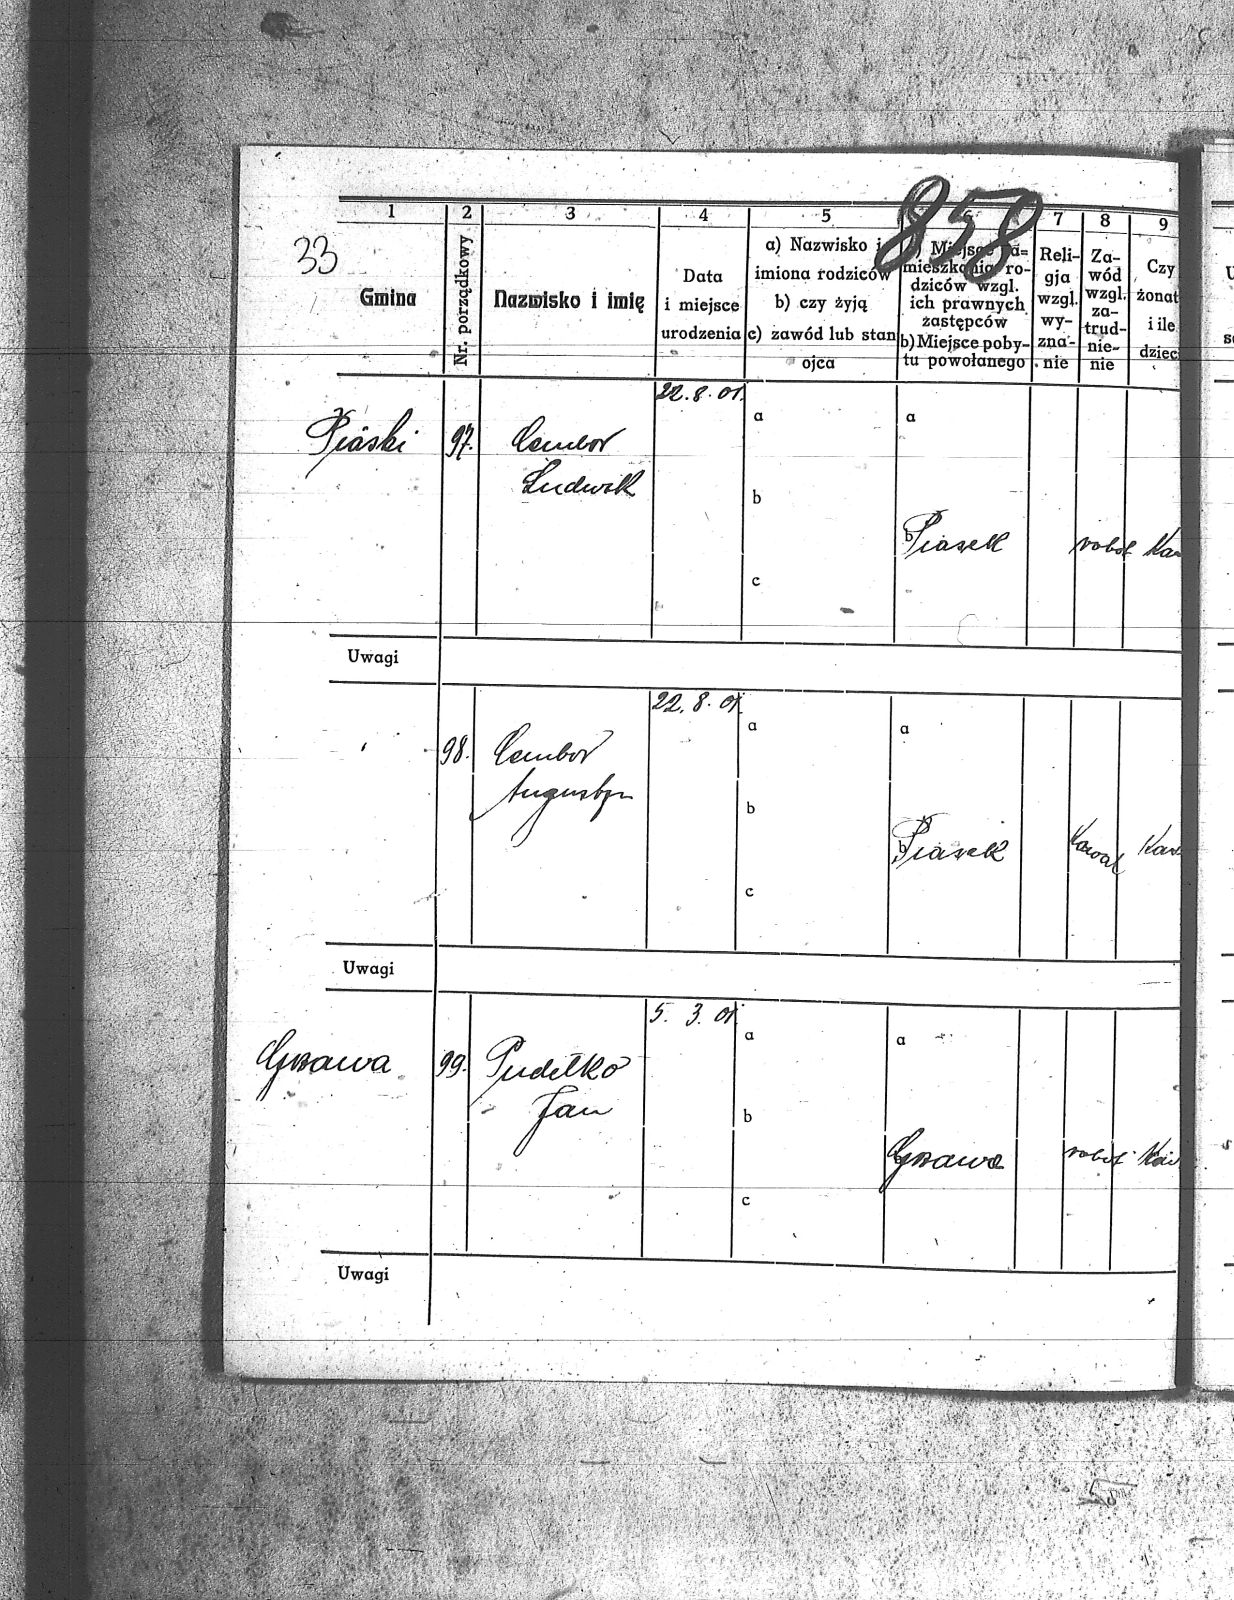 858
33
1 2 3 4 5 7 8 9
Gmina
Nr. porządkowy
Nazwisko i imię
Data
i miejsce
urodzenia
a) Nazwisko i
imiona rodziców
b) czy żyją
c) zawód lub stan
ojca
Miejsce za=
mieszkania ro-
dziców wzgl.
ich prawnych
zastępców
b) Miejsce poby-
tu powołanego
Reli-
gja
wzgl.
wy-
zna-
nie
Za-
wód
wzgl.
za-
trud-
nie-
nie
Czy
żonat
i ile
dzieci
22. 8. 01.
Piaski 97. Cembor a a
Ludwik
b
b Piasek robot Kaw
c
Uwagi
22. 8. 01.
98. Cembor a a
Augustyn
b
b Piasek Kowal Kaw
c
Uwagi
5. 3. 01.
Grzawa 99. Pudełko a a
Jan b
Grzawa robot Kaw
c
Uwagi